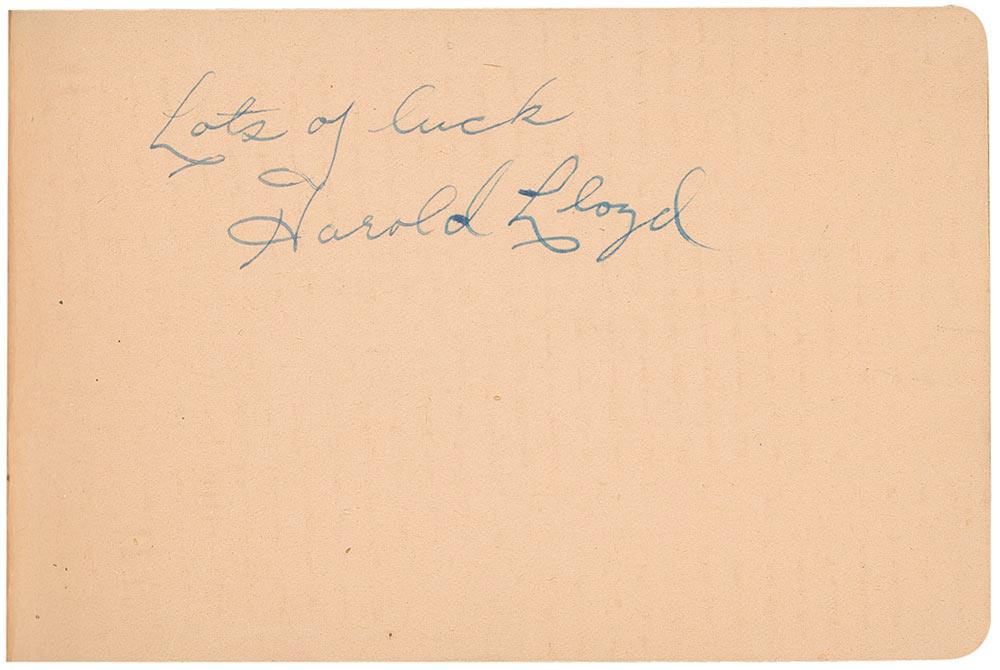 Lots of luck
Harold Lloyd